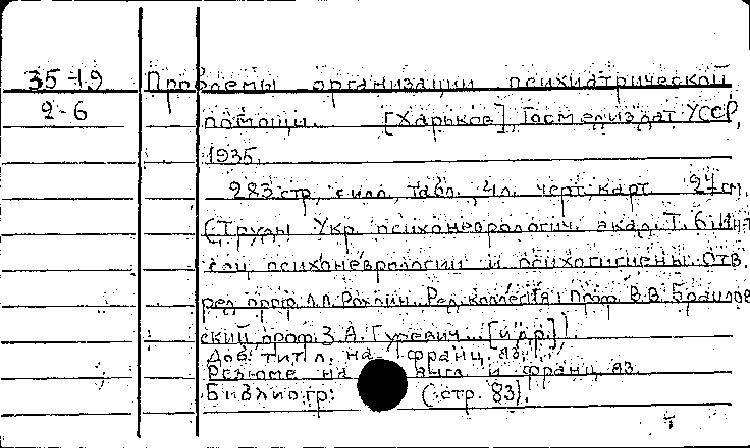 35-19 Проблемы организации психиатрической
2-6 помощи. [Харьков], Госмедиздат УССР,
1935.
283 стр., с илл., табл., 4 л. черт., карт. 27 см.
(Труды Укр. психоневрологич. акад. Т. 6. Ин-т
соц. психоневрологии и психогигиены. Отв.
ред. проф. Л.Л. Рохлин. Ред. коллегия: Проф. В.В. Браилов-
ский, проф. З.А. Гуревич... [и др.]).
Доб. тит. л. на франц. яз.
Резюме на англ. и франц. яз.
Библиогр: (стр. 83).